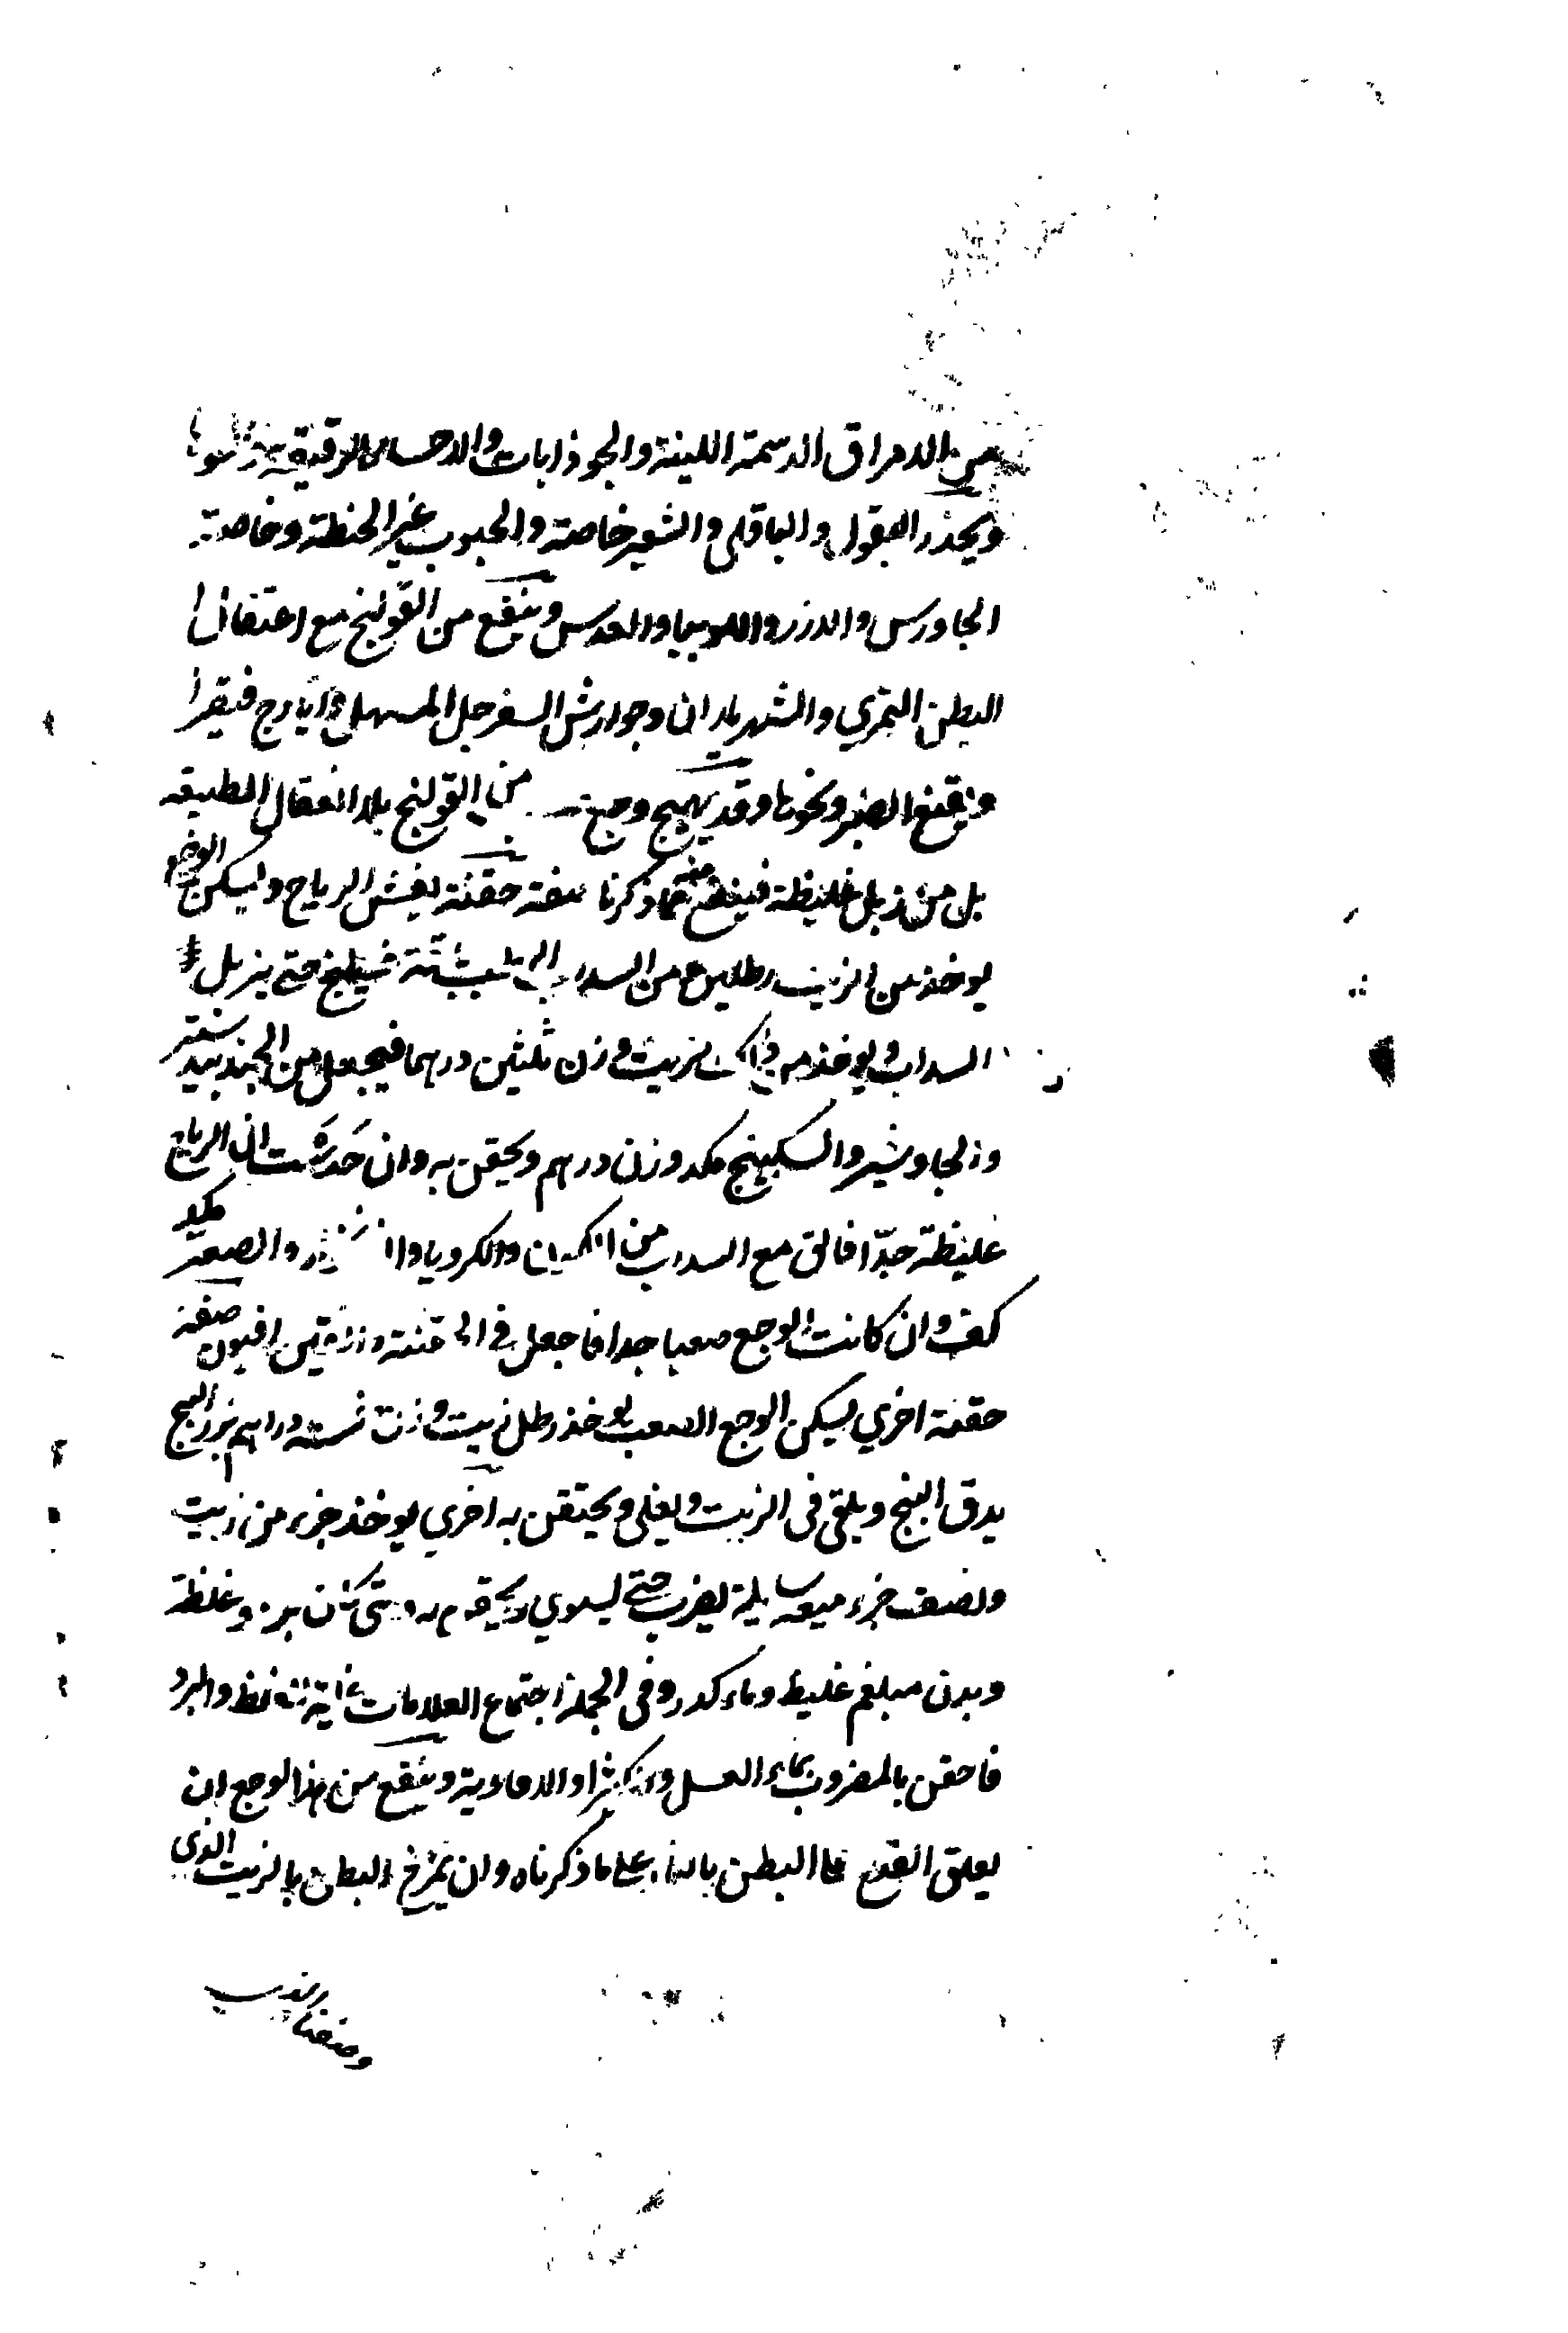 من الامراق الدسمة اللينة والجوذابات والاحساء الرقيقة ونحوها
ويحذر البقول والباقلى والشعير خاصة والحبوب غير الحنطة وخاصة
الجاورس والارز واللوبيا والعدس وينفع من القولنج مع اعتقال
البطن التمري والشهرياران وجوارش السفرجل المسهل وايارج فيقرا
ونقيع الصبر ونحوها وقد يهيج وجع من القولنج بلا انعقال الطبيعه
بل من زبل غليظة فينفع منه ما ذكرنا صفة حقنة يفش الرياح وليسكن الوجع
يوخذ من الزيت رطلين من السداب شبثة فيطبخ حتى يزبل
السداب ويوخذ من ذلك الزيت وزن ثلثين درهما فيجعل من الجندبيدستر
والجاوشير والسكبينج مكد وزن درهم ويحقن به وان حدست ان الرياح
غليظة جدّا فالق مع السداب من الكمون والكرويا والصعتر مكد
كف وان كانت الوجع صعبا جدا فاجعل في الحقنة وزن افيون صفة
حقنة اخري ليسكن الوجع الصعب يوخذ رطل زيت وزن ستة دراهم بزر البنج
يدق البنج ويلقى في الزيت ويغلى ويحتقن به اخري يوخذ جزء من زيت
ونصف جزء ميعه سايلة يضرب حتى ليستوي به متى كان برد وغلظة
وبدن مبلغم غليظ وماء كدر وفي الجملة اجتماع العلامات غاية الغلظ والبرد
فاحقن بالمضروب بماء العسل والافاوية وينفع من هذا الوجع ان
يعلق القدح على البطن بالنار على ما ذكرناه وان يمرخ البطن بالزيت الذي